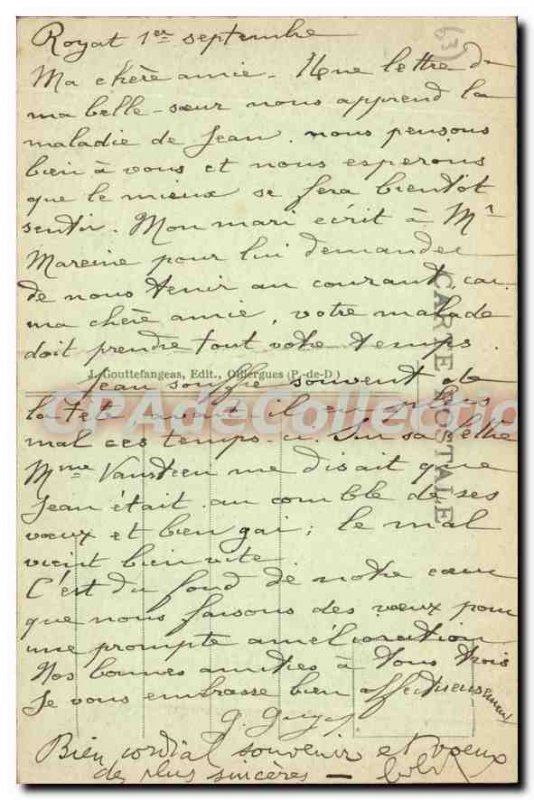 Royat 1er septembre
Ma chère amie - Une lettre de
ma belle-sœur nous apprend la
maladie de Jean. nous pensons
bien à vous et nous esperons
que le mieux se fera bientôt
sentir. Mon mari écrit à Mr
pour lui demander
de nous tenir au courant car
ma chère amie, votre malade
doit prendre tout votre temps.
J. Gouttefangeas, Edit., Olliergues (P.-de-D)
Jean souffre souvent de
la tête avait il
mal ces temps-ci. Sur sa lettre
Mme me disait que
Jean était au comble de ses
vœux et bien gai ; le mal
vient bien vite
C'est du fond de notre cœur
que nous faisons des vœux pour
une prompte amélioration
Nos bonnes amitiés à tous trois
Je vous embrasse bien affectueusement
G.
Bien cordial souvenir et vœux
de plus sincères —
CARTE POSTALE
CPAdeCollection
63